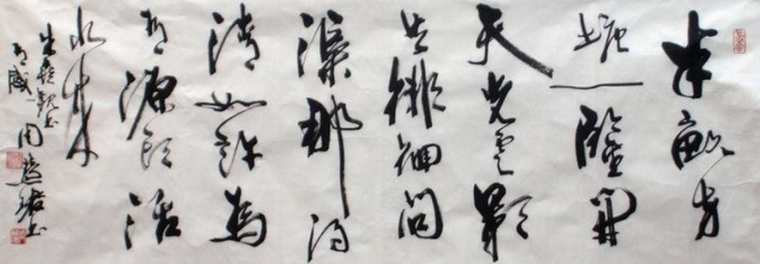 半亩方
塘一鉴开
天光云影
共徘徊问
渠那得
清如许为
有源头活
水来
朱熹观书
有感
周慧珺书